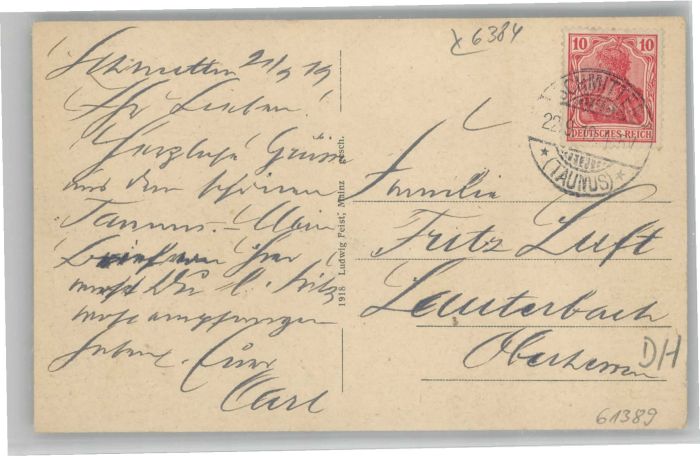 Schmitten 21/9 19
Ihr Lieben!
Herzliche Grüsse
aus dem schönen
Taunus. – Mein
Brief von hier
wirst Du l. Fritz
wohl empfangen
haben. Euer
Carl
1918 Ludwig Feist, Mainz gesch.
x 6384
10 10
DEUTSCHES REICH
SCHMITTEN
22.9.
(TAUNUS)
Familie
Fritz Luft
Lauterbach
Oberhessen
DH
61389